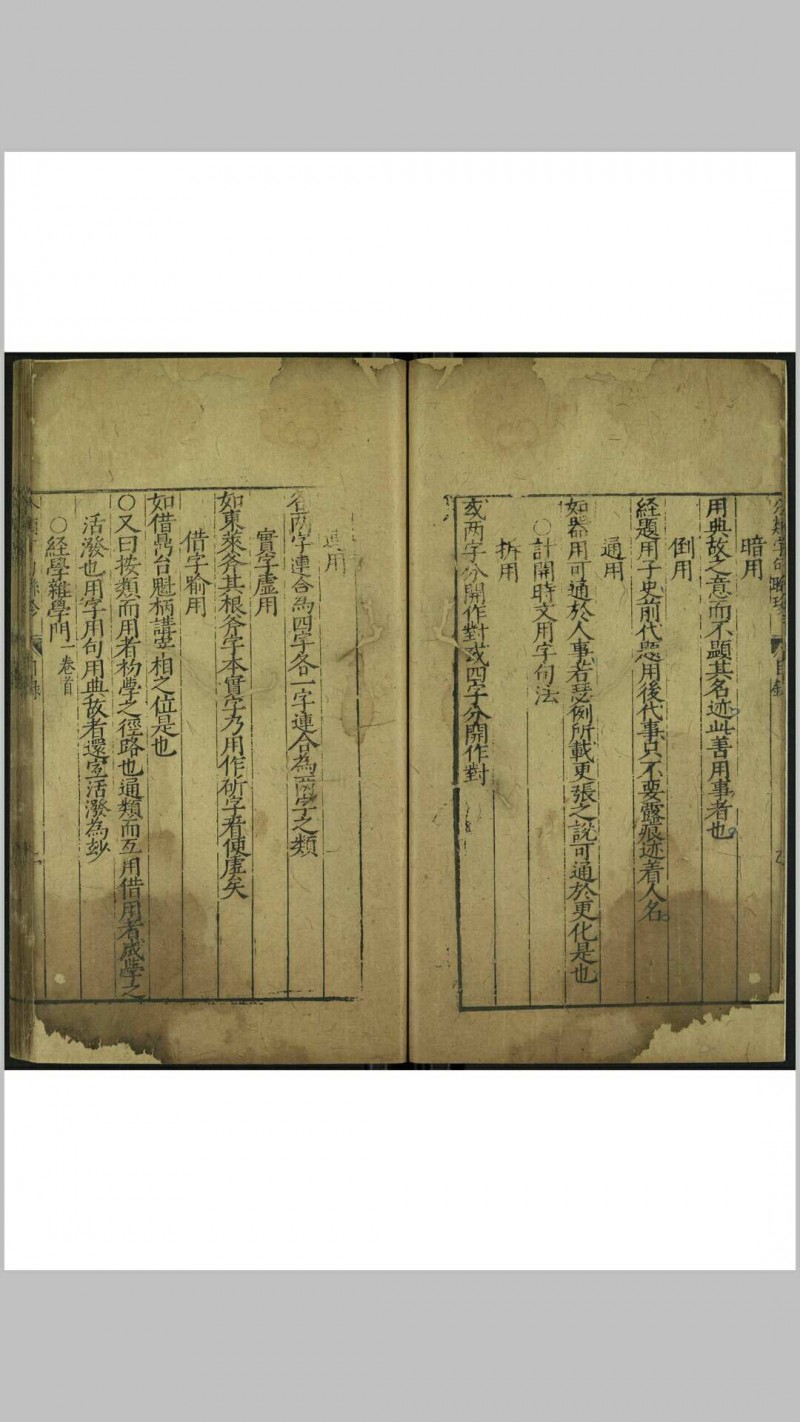 暗用
用典故之意而不顯其名迹此善用事者也
倒用
経題用子史前代題用後代事只不要露痕迹着人名
通用
如器用可通於人事若瑟例所載更張之說可通於更化是也
○計開時文用字句法
拆用
或两字分開作對或四字分開作對
用
各两字連合為四字各一字連合為兩字之類
實字虛用
如東萊斧其根斧字本實字乃用作斫字看使虛矣
借字喻用
如借鼎台魁柄講宰相之位是也
○又曰按類而用者初學之徑路也通類而互用借用者盛學之
活潑也用字用句用典故者還宜活潑為玅
○経學雜學門一卷首